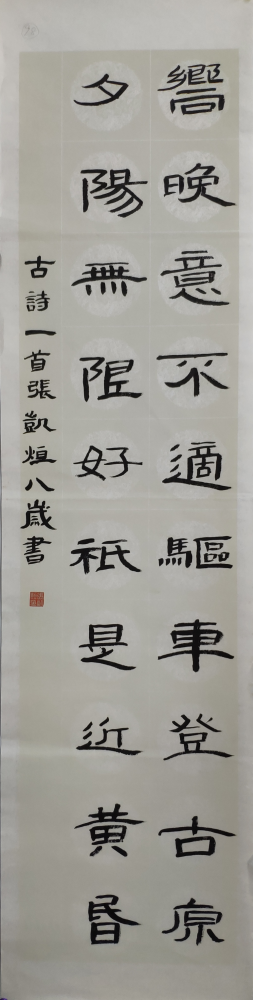 嚮晚意不適驅車登古原
夕陽無限好祇是近黃昏
古詩一首張凱烜八歲書